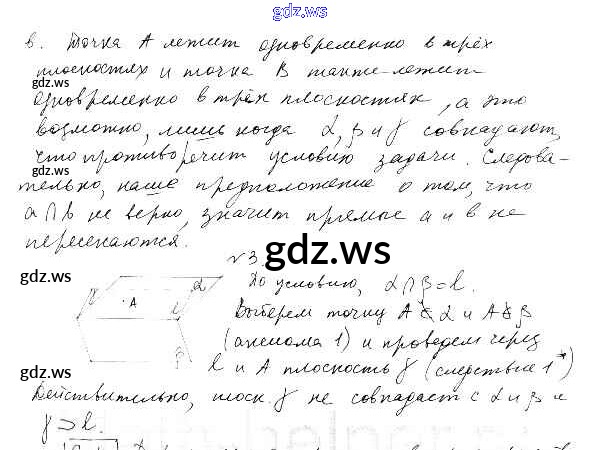 gdz.ws
в. Точка A лежит одновременно в трёх
плоскостях и точка B также лежит
gdz.ws
gdz.ws
одновременно в трёх плоскостях, а это
возможно, лишь когда α, β и γ совпадают,
что противоречит условию задачи. Следова-
gdz.ws
тельно, наше предположение о том, что
a∩b не верно, значит прямые a и b не
пересекаются.
gdz.ws
gdz.ws
№3.
По условию, α∩β=l.
γ α
A l
β
Выберем точку A∉α и A∉β
(аксиома 1) и проведём через
gdz.ws
l и A плоскость γ (следствие 1*)
Действительно, плоск. γ не совпадает с α и β и
γ⊃l.